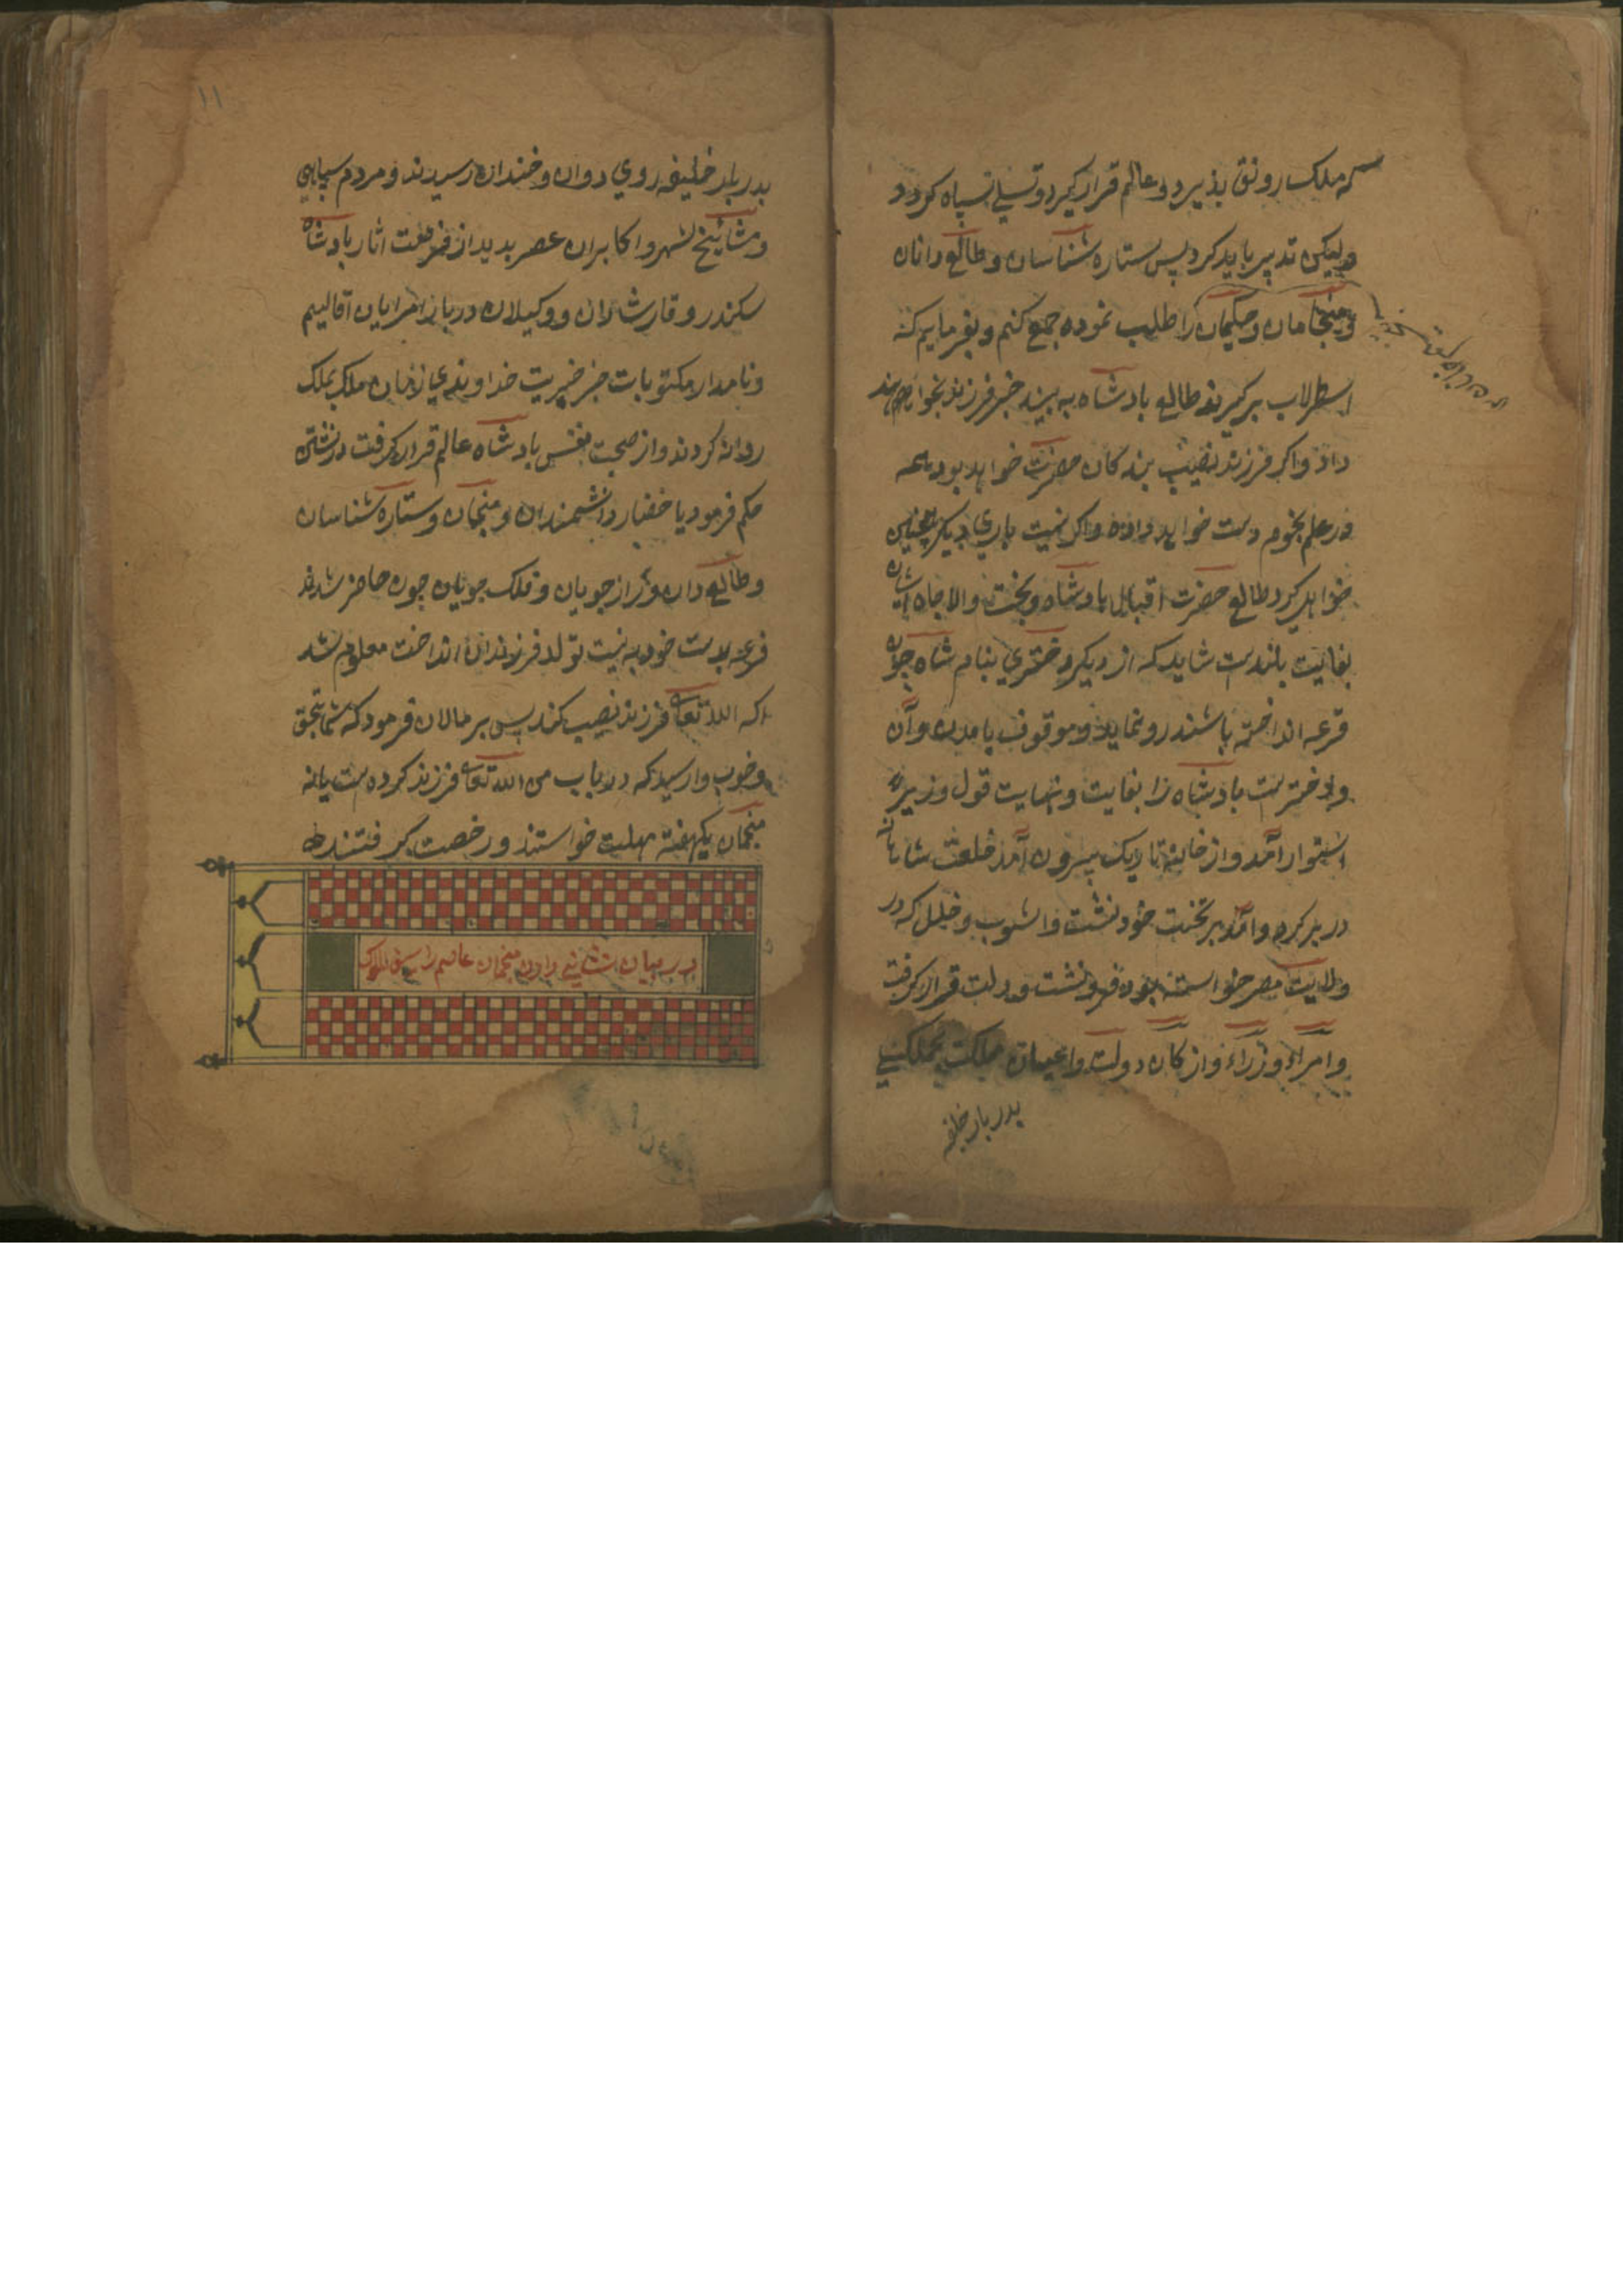 که ملک رونق پذیرد و عالم قرار گیرد و تسلی سپاه گردد
ولیکن تدبیر باید کرد پس ستاره شناسان و طالع دانان
و منجامان و حکیمان را طلب نموده جمع کنم و بفرمایم که
اسطرلاب برگیرند طالع بادشاه به بیند خبر فرزند بخواهند
داد و اگر فرزند نصیب بندگان حضرت خواهد بود همه
در علم نجوم دست خواهد داد و اگر نیت باری دیگر همچنین
خواهد کرد طالع حضرت اقبال بادشاه و بخت والاجاه ایشان
بغایت بلندست شاید که از دیگر دختری بنام شاه جوان
قرعه انداخته باشند رو نماید و موقوف بامدن و آن
دختر ست بادشاه را بغایت و نهایت قول وزیر
استوار آمد و از خانه تاریک بیرون آمد خلعت شاهانه
در بر کرد و آمد بر تخت خود نشست و اشوب و خلل که در
ولایت مصر خواسته بود فرو نشست و دولت قرار گرفت
و امراء وزراء و ارکان دولت و اعیان مملکت
بدربار خلیفه
۱۱
بدربار خلیفه روی دوان و خندان رسیدند و مردم سپاهی
و مشائیخ شهر و اکابران عصر بدیدار بادشاه
سکندر وقار شادان و وکیلان دربار امرایان اقالیم
و نامدار مکتوبات خبر خیریت خداوندی از زمان ملک بملک
روانه کردند و از صحبت نفس بادشاه عالم قرار گرفت در نشستن
حکم فرمود با حضار دانشمندان و منجمان و ستاره شناسان
و طالع دان و راز جویان و فلک جویان چون حاضر شدند
قرعه بدست خود به نیت تولد فرزندان انداخت معلوم شد
که الله تعالی فرزند نصیب کند پس بر مالان فرمود که شما بتحقق
و خوب وارسید که در باب من الله تعالی فرزند کرده ست یا نه
منجمان یکهفته مهلت خواستند و رخصت گرفتند
در بیان نشانی دادن منجمان عاصم را سیف الملوک